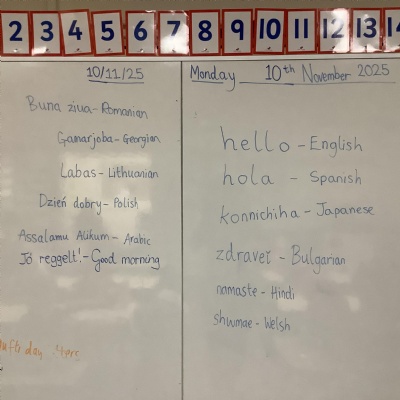 2 3 4 5 6 7 8 9 10 11 12 13 14
10/11/25
Buna ziua - Romanian
Gamarjoba - Georgian
Labas - Lithuanian
Dzień dobry - Polish
Assalamu Alikum - Arabic
Jó reggelt! - Good morning
Monday 10th November 2025
hello - English
hola - Spanish
konnichiha - Japanese
zdravei - Bulgarian
namaste - Hindi
shwmae - Welsh